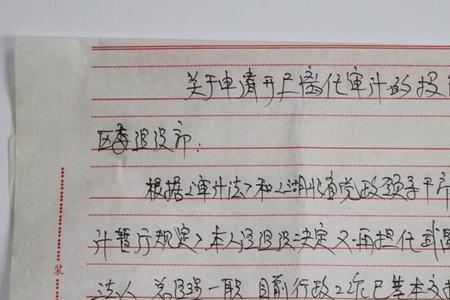 关于申请开展离任审计的报
区委组织部：
根据《审计法》和《湖北省党政领导干部
计暂行规定》，本人因组织决定不再担任
法人 总经理一职 目前行政工作已基本交
装